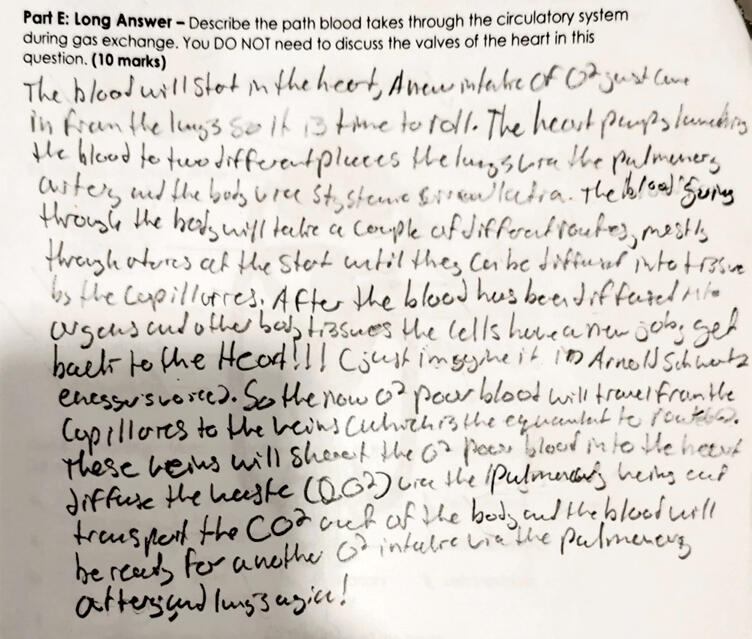 Part E: Long Answer – Describe the path blood takes through the circulatory system
during gas exchange. You DO NOT need to discuss the valves of the heart in this
question. (10 marks)
The blood will Stat in the heart, A new intake of O² just came
in from the lungs so it is time to roll. The heart pumps launching
the blood to two different places the lungs via the pulmenery
artery and the body vica The blood going
through the body will take a couple of different routes, mostly
through at the Stat until they can be diffused into tissue
by the Capillarres. After the blood has been diffused into
organs and other body tissues the cells have a new job, get
back to the Heart!!! (just imagine it in Arnold Schwartz
enegger's voice). So the now O² poor blood will travel from the
Capillares to the veins (which is the equivalent to
These veins will the O² poor blood into the heart
diffuse the waste (CO²) via the Pulmenary veins and
transport the CO² out of the body and the blood will
be ready for another O² intake via the pulmenery
artery and lungs agian!